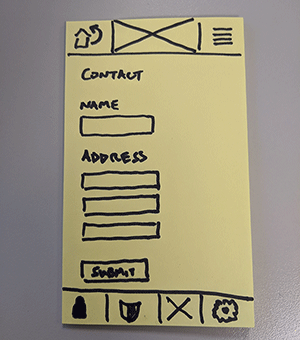 CONTACT
NAME
ADDRESS
SUBMIT